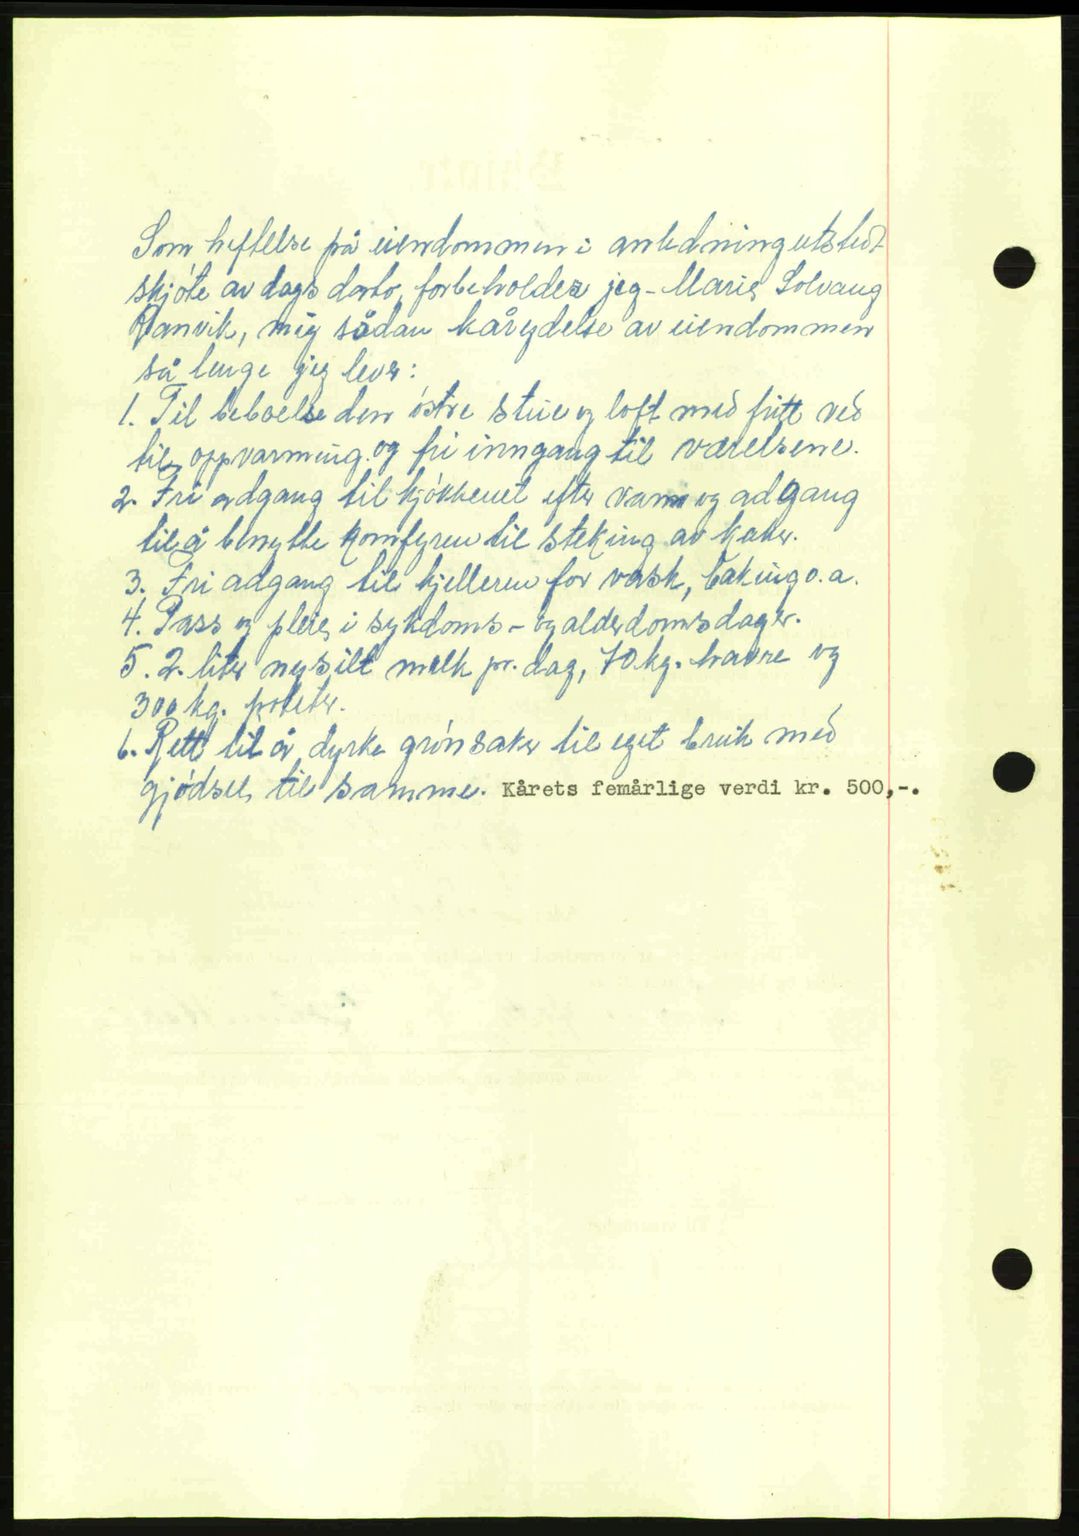 Som heftelse på eiendommen i anledning utstedt
skjöte av dags dato, forbeholder jeg - Marie Solvaag
Vanvik, mig sådan kårydelse av eiendommen
så lenge jeg lever:
1. Til beboelse den östre stue og loft med fritt ved
til oppvarming og fri inngang til værelsene.
2. Fri adgang til kjökkenet efter vann og adgang
til å benytte komfyren til steking av kaker.
3. Fri adgang til kjelleren for vask, baking o.a.
4. Pass og pleie i sykdoms- og alderdomsdager.
5. 2 liter nysilt melk pr. dag, 70 kg. havre og
300 kg. poteter.
6. Rett til å dyrke grönsaker til eget bruk med
gjödsel til samme. Kårets femårlige verdi kr. 500,-.